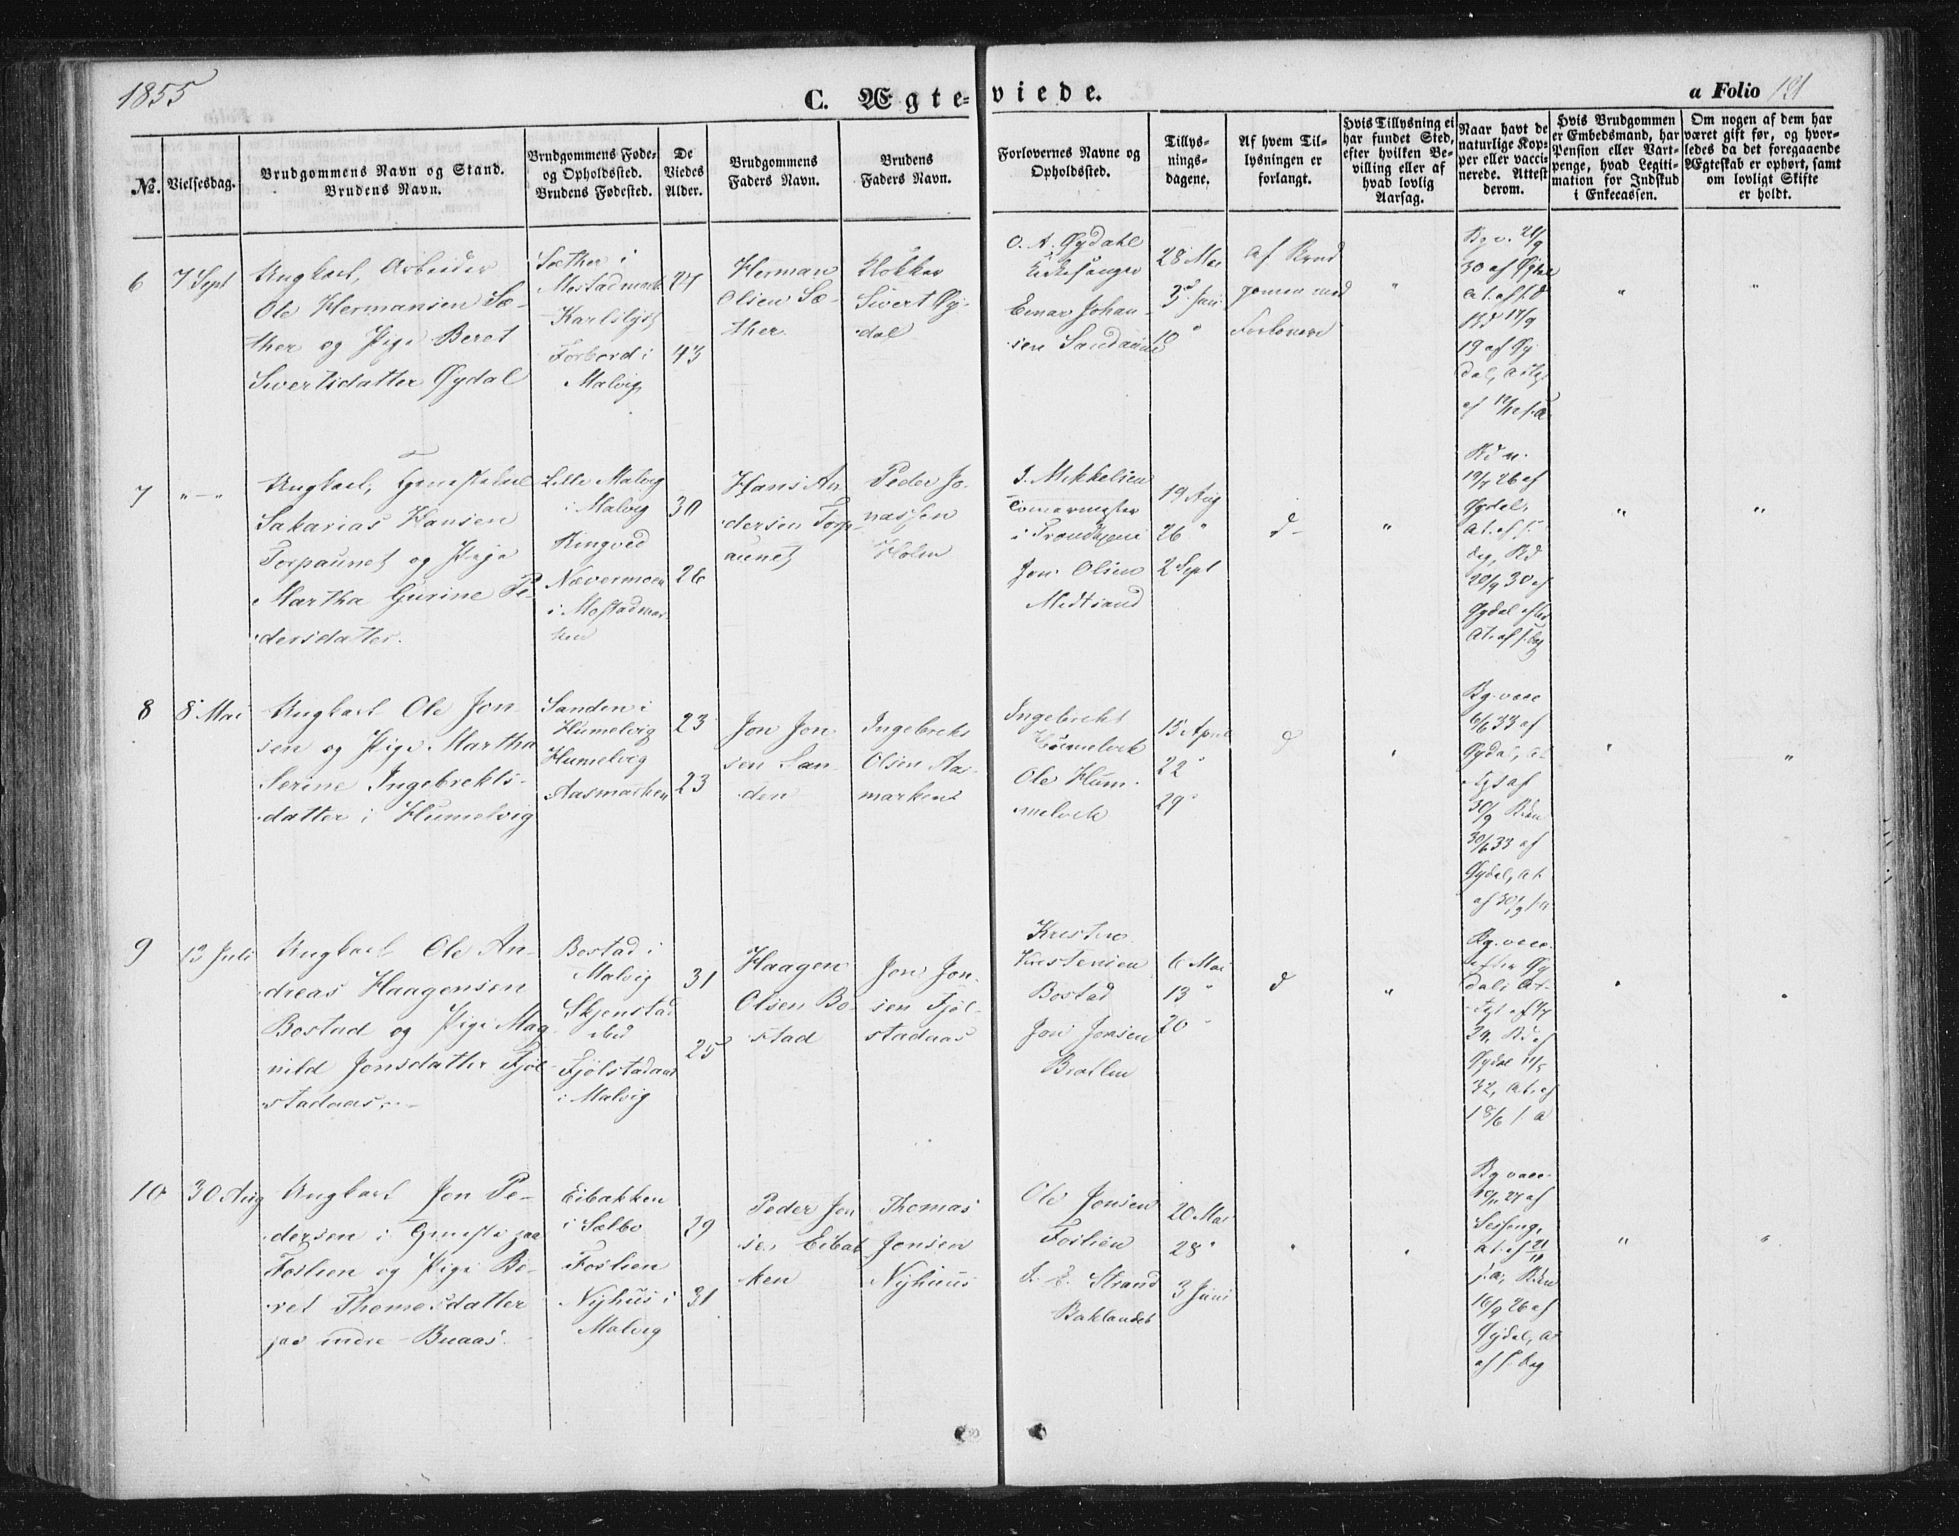 1855
C. Ægteviede.
a Folio 121
No.
Vielsesdag.
Brudgommens Navn og Stand.
Brudens Navn.
Brudgommens Føde-
og Opholdssted.
Brudens Fødested.
De
Viedes
Alder.
Brudgommens
Faders Navn.
Brudens
Faders Navn.
Forlovernes Navne og
Opholdssted.
Tillys-
nings-
dagene.
Af hvem Til-
lysningen er
forlangt.
Hvis Tillysning ei
har fundet Sted,
efter hvilken Be-
villing eller af
hvad lovlig
Aarsag.
Naar havt de
naturlige Kop-
per eller vacci-
nerede. Attest
derom.
Hvis Brudgommen
er Embedsmand, har
Pension eller Vart-
penge, hvad Legiti-
mation for Indskud
i Enkecassen.
Om nogen af dem har
været gift før, og hvor-
ledes da det foregaaende
Ægteskab er ophørt, samt
om lovligt Skifte
er holdt.
6
7 Sept
Ungkarl, Arbeider
Ole Hermansen Sæ-
ther og Pige Beret
Sivertsdatter Øydal
Sæther i
Mostadmark
Karlslyst
Forbord i
Malvig
43
Herman
Olsen Sæ-
ther
Klokker
Sivert Øy-
dal
O. A. Øydahl
Kirkesanger
Einar Johan-
sen Sandaune
28 Mai
3d Juni
10 "
Af Brud
gomen med
Forlovere
"
30 af Øydal
19 af Øy
dal,
"
"
7
" — "
Ungkarl, Grustadel
Sakarias Hansen
Torpaunet og Pige
Martha Gurine Pe-
dersdatter.
Lille Malvig
i Malvig
Ringved
Nævermoen
i Mostadmar-
ken
30
26
Hans An
dersen Torp
aunet
Peder Jo
nassen
Holm
J. Mikkelsen
Tømermester
i Trondhjem
Jon Olsen
Midtsand
19 Aug
26 "
2 Sept
d-
"
19/7 26 af
Øydal,
20/9 30 af
Øydal efter
At. af s. Dag
"
"
8
8 Mai
Ungkarl Ole Jon-
sen og Pige Martha
Nerine Ingebrekts-
datter i Humelvig
Sanden i
Humelvig
Humelvig
Aasmarken
23
23
Jon Jon
sen San-
den
Ingebrekt
Olsen Aas-
marken
Ingebrekt
Humelvik
Ole Hum-
melvik
15 April
22 "
29 "
d
"
Bg. vacc
6/6 33 af
Øydal, at
30/6 33 af
Øydal, at.
"
"
9
13 Juli
Ungkarl Ole An-
dreas Haagensen
Bostad og Pige Mag
nild Jonsdatter Fjøl-
stadaas
Bostad i
Malvig
Skjenstad
ibid
Fjølstadaas
i Malvig
31
25
Haagen
Olsen Bo-
stad
Jon Jon-
sen Fjøl-
stadaas
Kristen
Kristensen
Bostad
Jon Jonsen
Bratlien
6 Mai
13 "
20 "
d
"
Bg. vacc.
efter Øy
dals At-
Øydal 11/5
32, At. af
18/6 l. a
"
"
10
30 Aug
Ungkarl Jon Pe-
dersen i Grueste paa
Foslien og Pige Be-
ret Thomesdatter
paa indre Buaas
Eibakken
i Sælbo
Foslien
Nyhuus i
Malvig
29
31
Peder Jon
sen Eibak
ken
Thomas
Jonsen
Nyhuus
Ole Jonsen
Foslien
J. E. Strand
Baklandet
20 Mai
28 "
3 Juni
"
"
Bg vacc.
16/9 26 af
Øydal, at
af s. Dag
"
"